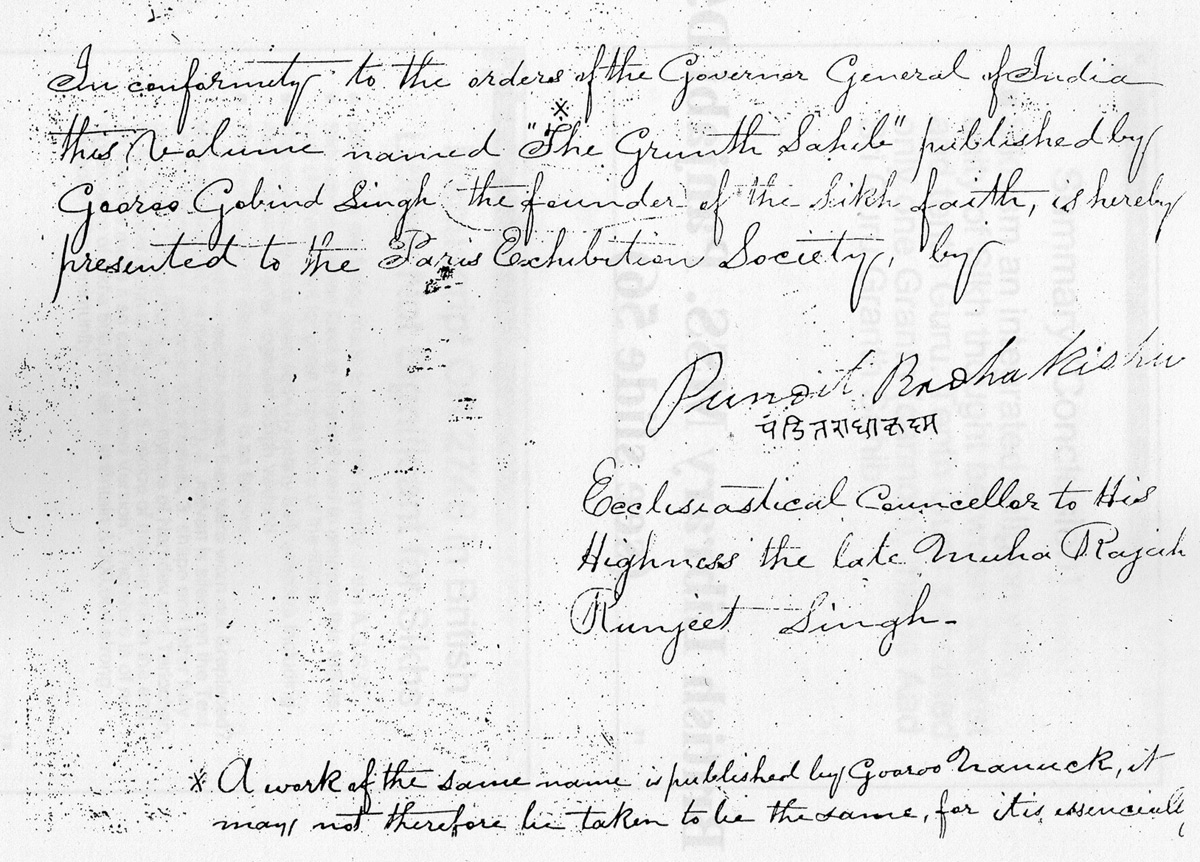 In conformety to the orders of the Governor General of India
this Volume named "The Grunth Sahib" published by
Gooroo Gobind Singh (the founder) of the Sikh faith, is hereby
presented to the Paris Exhibition Society, by
Pundit Radha Kishn
पंडित राधा
Ecclesiastical Councellor to His
Highness the late Muha Rajah
Runjeet Singh-
※ A work of the same name is published by Gooroo Nanuck, it
may not therefore be taken to be the same, for it is essencially